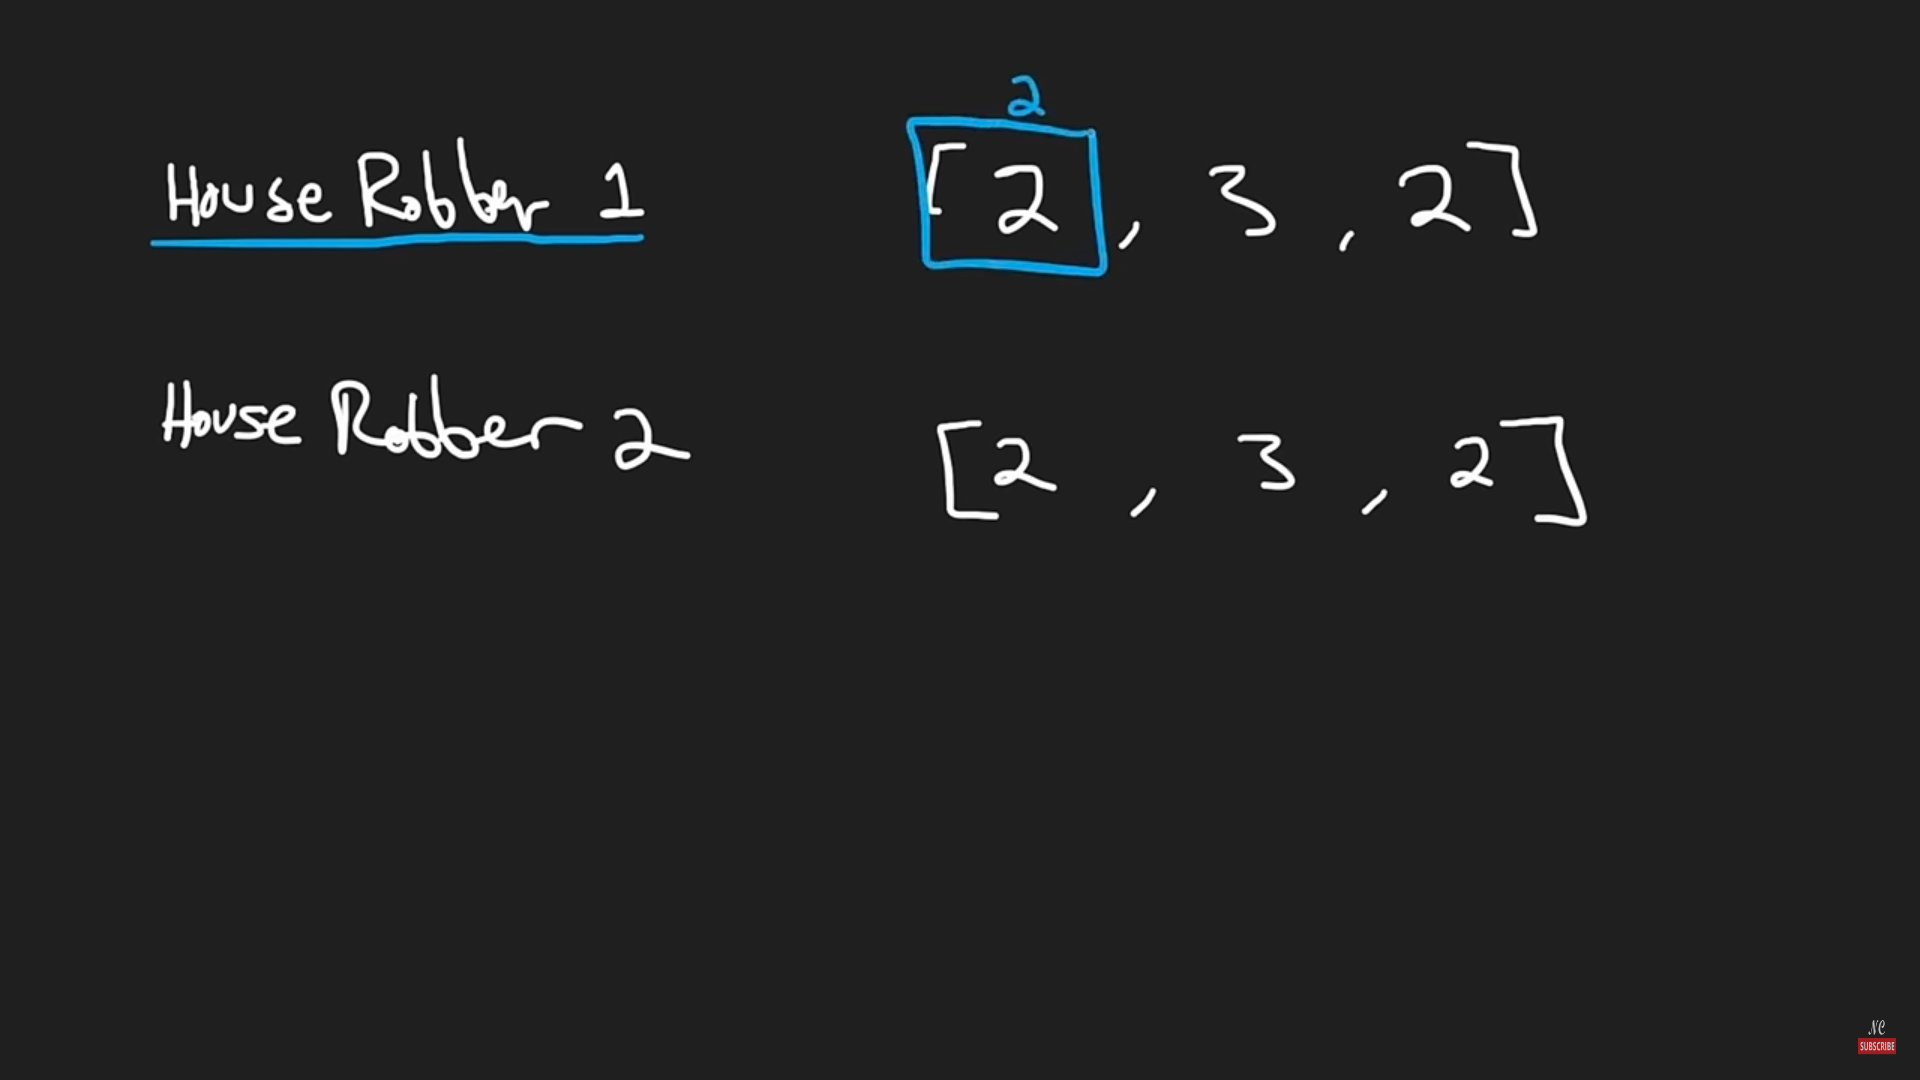 2
House Robber 1 [2, 3, 2]
House Robber 2 [2, 3, 2]
NC
SUBSCRIBE